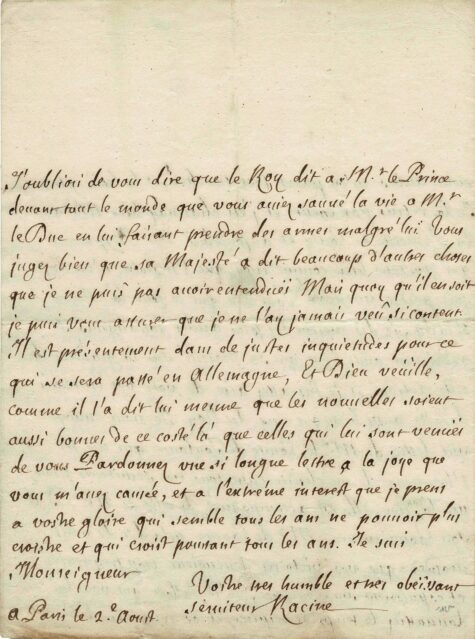 J'oubliai de vous dire que le Roy dit a M.r le Prince
devant tout le monde que vous aviez sauvé la vie a M.r
le Duc en lui faisant prendre des armes malgré lui Vous
jugez bien que sa Majesté a dit beaucoup d'autres choses
que je ne puis pas avoir entendües Mais quoy qu'il en soit
je puis vous assurer que je ne l'ay jamais veû si content.
Il est présentement dans de justes inquietudes pour ce
qui se sera passé en Allemagne, Et Dieu veüille,
comme il l'a dit lui mesme que les nouvelles soient
aussi bonnes de ce costé là que celles qui lui sont venües
de vous Pardonnez une si longue lettre a la joye que
vous m'avez causée, et a l'extréme interest que je prens
a vostre gloire qui semble tous les ans ne pouvoir plus
croistre et qui croist pourtant tous les ans. Je suis
Monseigneur
Vostre tres humble et tres obeïssant
a Paris le 2.e Aoust serviteur Racine